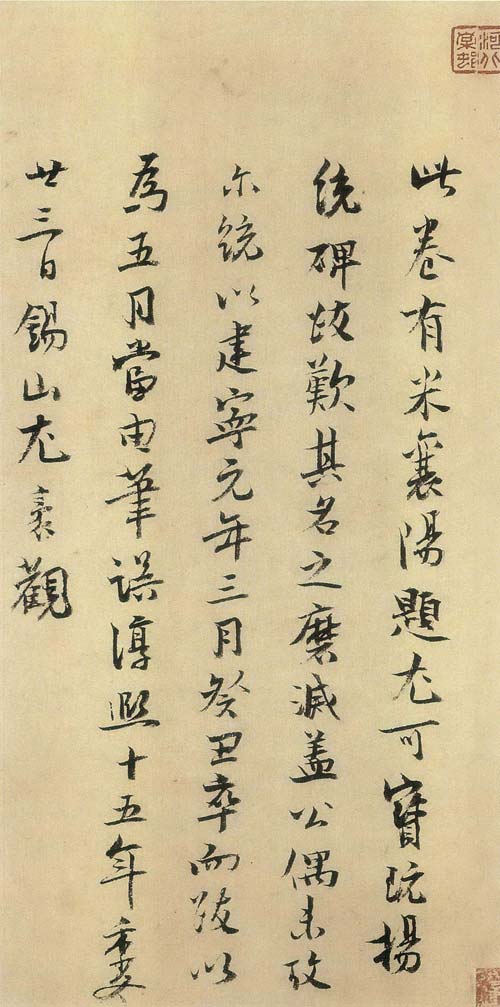 此卷有米襄陽題尤可寶玩揚
統碑跋歎其名之磨滅蓋公偶未攷
尓統以建寧元年三月癸丑卒而跋以
為五月當由筆誤淳熙十五年季夏
廿三日錫山尤袤觀